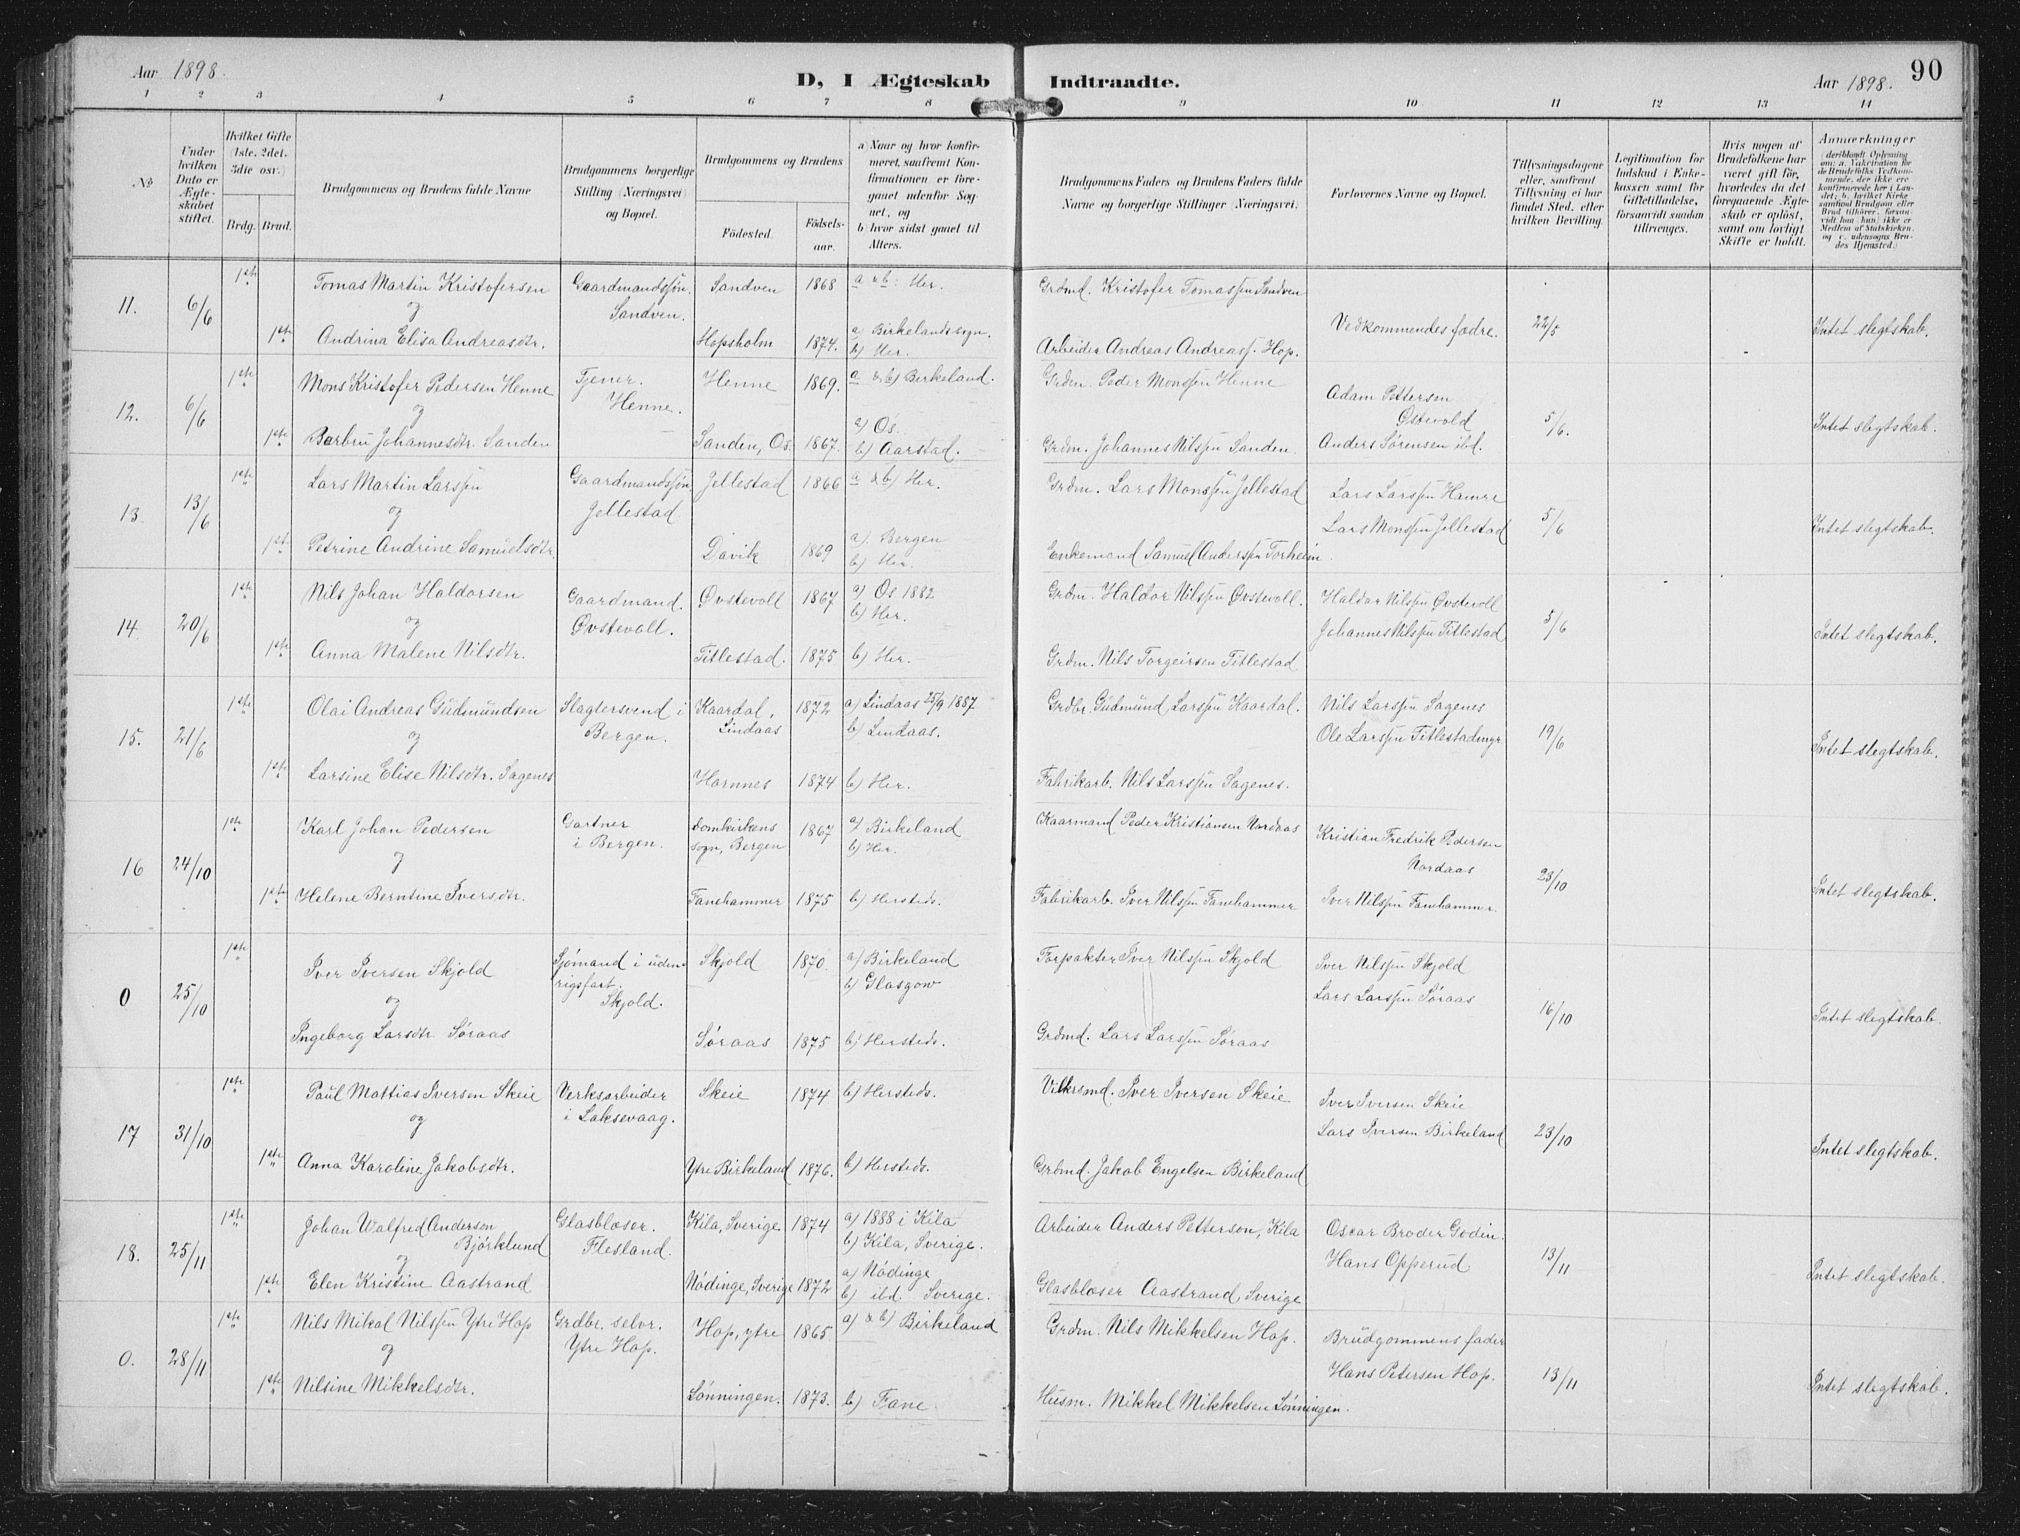 Aar 1898.
D, I Ægteskab Indtraadte.
Aar 1898.
90
1 2 3 4 5 6 7 8 9 10 11 12 13 14
No
Under hvilken Dato er Ægteskabet stiftet.
Hvilket Gifte (1ste, 2det, 3die osv.)
Brdg. Brud.
Brudgommens og Brudens fulde Navne
Brudgommens borgerlige Stilling (Næringsvei) og Bopæl.
Brudgommens og Brudens
Fødested.
Fødselsaar.
a) Naar og hvor konfirmeret, saafremt Konfirmationen er foregaaet udenfor Sognet, og
b) hvor sidst gaaet til Alters.
Brudgommens Faders og Brudens Faders fulde Navne og borgerlige Stillinger (Næringsvei)
Forlovernes Navne og Bopæl.
Tillysningsdagene eller, saafremt Tillysning ei har fundet Sted, efter hvilken Bevilling.
Legitimation for Indskud i Enkekassen samt for Giftetilladelse, forsaavidt saadan tiltrænges.
Hvis nogen af Brudefolkene har været gift før, hvorledes da det foregaaende Ægteskab er opløst, samt om lovligt Skifte er holdt.
Anmærkninger
(deriblandt Oplysning om: a. Vakcination for de Brudefolks Vedkommende, der ikke ere konfirmerede her i Landet, b. hvilket Kirkesamfund Brudgom eller Brud tilhører, forsaavidt han (hun) ikke er Medlem af Statskirken, og c. udensogns Brudes Hjemsted.)
11. 6/6 1ste Tomas Martin Kristofersen Gaardmandssøn. Sandven 1868 a & b: Her. Grdmd. Kristofer Tomassen Sandven
og Sandven. Vedkommendes fædre. 22/5 Intet slegtskab.
1ste Andrina Elisa Andreasdtr. Hopsholm 1874. a) Birkelandssogn. Arbeider Andreas Andreass. Hop.
b) Her.
12. 6/6 1ste Mons Kristofer Pedersen Henne Tjener. Henne 1869. a & b) Birkeland. Grdm. Peder Monssen Henne Adam Pettersen
og Henne. Østevold 5/6. Intet slegtskab.
1ste Barbru Johannesdtr. Sanden Sanden, Os. 1867. a) Os. Grdm. Johannes Nilssen Sanden. Anders Sørensen ibd.
b) Aarstad.
13. 13/6 1ste Lars Martin Larssen Gaardmandssøn Jellestad 1866 a & b) Her. Grdm. Lars Monssen Jellestad Lars Larssen Hamre
og Jellestad Lars Monssen Jellestad 5/6 Intet slegtskab.
1ste Petrine Andrine Samuelsdtr. Davik 1869 a) Bergen Enkemand Samuel Anderssen Torheim
b) Her.
14. 20/6 1ste Nils Johan Haldorsen Gaardmand. Øvstevoll 1867 a) Os 1882 Grdm. Haldor Nilssen Øvstevoll. Haldor Nilssen Øvstevoll
og Øvstevoll. b) Her. Johannes Nilssen Titlestad 5/6 Intet slegtskab.
1ste Anna Malene Nilsdtr. Titlestad. 1875 b) Her. Grdm. Nils Torgeirsen Titlestad
15. 21/6 1ste Olai Andreas Gudmundsen Slagtersvend i Kaardal, 1872 a) Lindaas 25/9 1887 Grdbr. Gudmund Larssen Kaardal. Nils Larssen Sagenes
og Bergen. Lindaas b) Lindaas. Ole Larssen Titlestadmyr 19/6 Intet slegtskab.
1ste Larsine Elise Nilsdtr. Sagenes Hornnes 1874 b) Her. Fabrikarb. Nils Larssen Sagenes.
16 24/10 1ste Karl Johan Pedersen Gartner Domkirkens 1867 a) Birkeland Kaarmand Peder Kristiansen Nordaas Kristian Fredrik Pedersen
og i Bergen. sogn, Bergen b) Her. Nordaas 23/10 Intet slegtskab.
1ste Helene Berntine Iversdtr. Fanehammer 1875 b) Hersteds. Fabrikarb. Iver Nilssen Fanehammer Iver Nilssen Fanehammer
0 25/10 1ste Iver Iversen Skjold Sjømand i uden- Skjold 1870. a) Birkeland Forpakter Iver Nilssen Skjold Iver Nilssen Skjold
og rigsfart. Skjold. b) Glasgow Lars Larssen Søraas 16/10 Intet slegtskab.
Ingeborg Larsdtr Søraas Søraas 1875 b) Hersteds. Grdmd. Lars Larssen Søraas
17 31/10 1ste Paul Mattias Iversen Skeie Verksarbeider Skeie 1874 b) Hersteds. Iver Iversen Skeie Iver Iversen Skeie
og i Laksevaag. Lars Iversen Birkeland 23/10 Intet slegtskab.
1ste Anna Karoline Jakobsdtr. Ytre Birkeland 1876. b) Hersteds. Grdmd. Jakob Engelsen Birkeland
18. 25/11 1ste Johan Walfred Anderson Glasblæser. Kila, Sverige 1874 a) 1888 i Kila Arbeider Anders Petterson, Kila Oscar Broder Godin.
Björklund Flesland. b) Kila, Sverige. Hans Opperud 13/11 Intet slegtskab.
og
1ste Elen Kristine Aastrand Nödinge, Sverige 1872 a) Nödinge Glasblæser Aastrand, Sverige
b) ibd. Sverige.
0. 28/11 1ste Nils Mikal Nilssen Ytre Hop Grdbr. selvr. Hop, ytre 1865 a) & b) Birkeland Grdm. Nils Mikkelsen Hop. Brudgommens fader
og Ytre Hop. Hans Petersen Hop. 13/11 Intet slegtskab.
1ste Nilsine Mikkelsdtr. Lønningen. 1873. b) Fane. Husm. Mikkel Mikkelsen Lønningen.